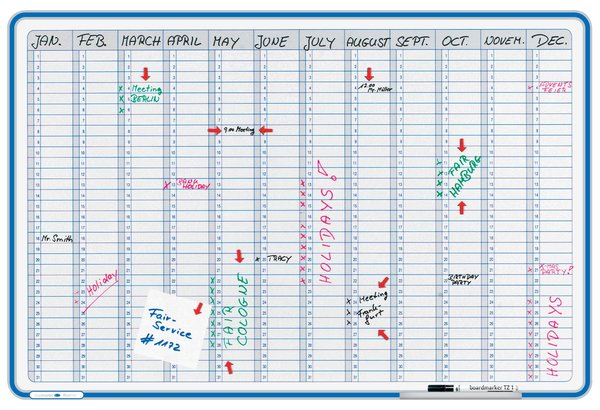 JAN. FEB. MARCH APRIL MAY JUNE JULY AUGUST SEPT. OCT. NOVEM. DEC.
Mr. Smith
Holiday
Meeting
BERLIN
BANK
HOLIDAY
9.00 Meeting
FAIR
COLOGNE
TRACY
HOLIDAYS!
12.00
Mr. Miller
Meeting
Frank-
furt
FAIR
HAMBURG
BIRTHDAY
PARTY
ADVENTS
FEIER
X-MAS
PARTY?
HOLIDAYS
Fair-
Service
# 1172
boardmarker TZ 1